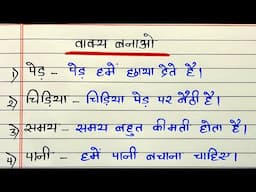 वाक्य बनाओ
1) पेड़ – पेड़ हमें छाया देते है।
2) चिड़िया – चिड़िया पेड़ पर बैठी है।
3) समय – समय बहुत कीमती होता है।
4) पानी – हमें पानी बचाना चाहिए।